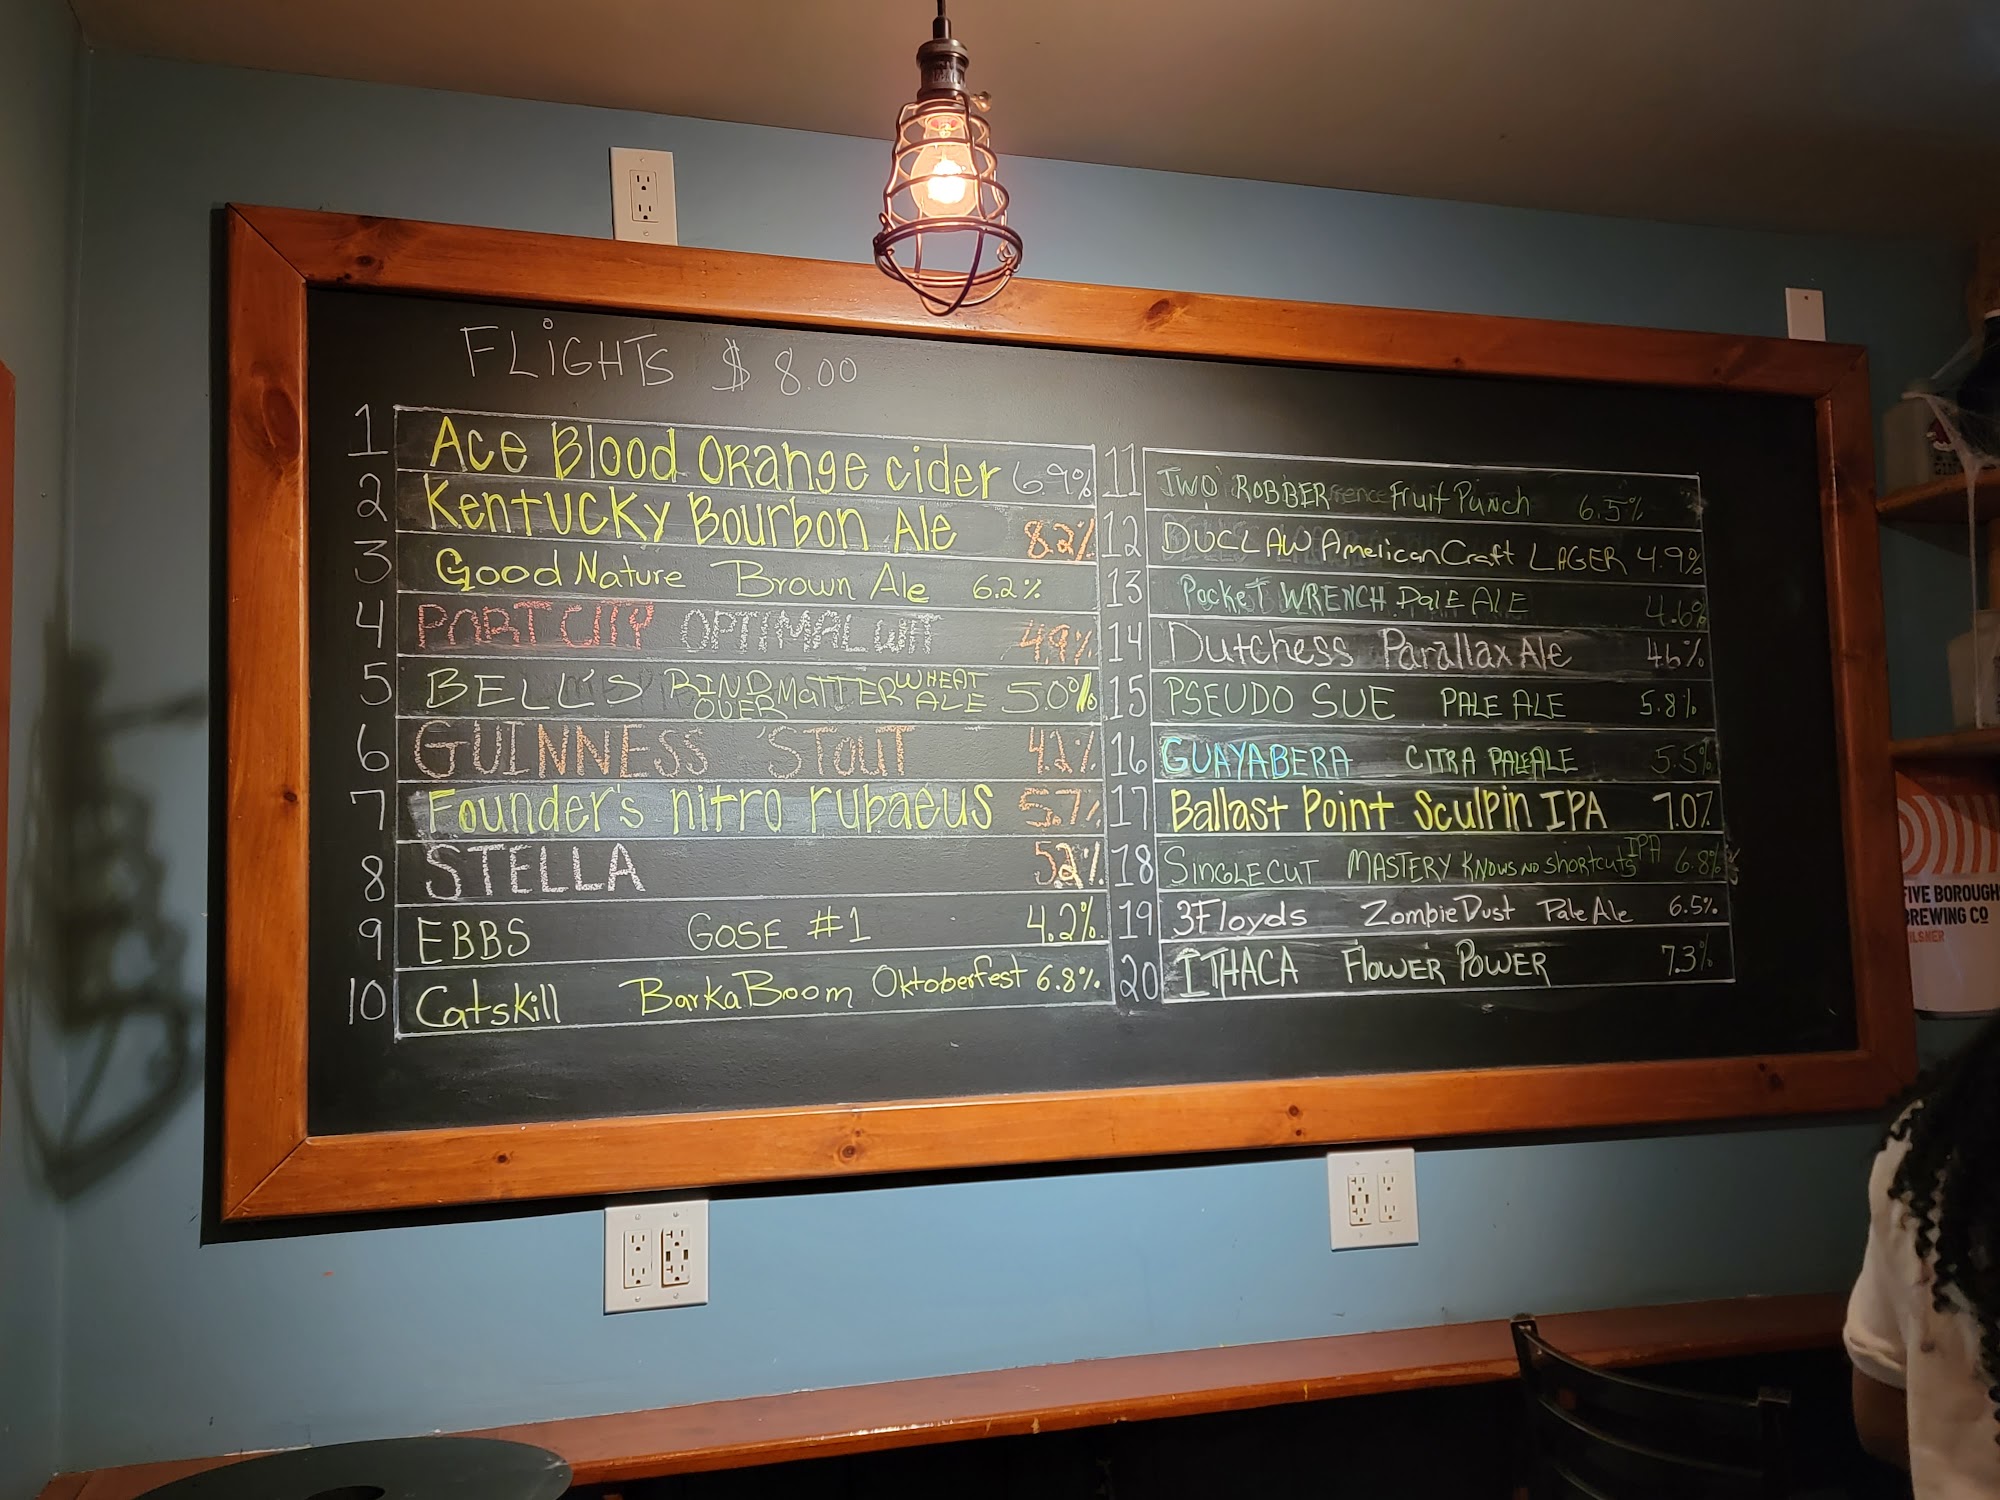 FLIGHTS $8.00
1 Ace Blood Orange cider 6.9%
2 Kentucky Bourbon Ale 8.2%
3 Good Nature Brown Ale 6.2%
4 PORT CITY OPTIMAL WIT 4.9%
5 BELL'S MIND OVER MATTER WHEAT ALE 5.0%
6 GUINNESS STOUT 4.2%
7 Founder's nitro rubaeus 5.7%
8 STELLA 5.2%
9 EBBS GOSE #1 4.2%
10 Catskill BarkaBoom Oktoberfest 6.8%
11 TWO ROBBER Fruit Punch 6.5%
12 DUCLAW American Craft LAGER 4.9%
13 Pocket WRENCH Pale ALE 4.6%
14 Dutchess Parallax Ale 4.6%
15 PSEUDO SUE PALE ALE 5.8%
16 GUAYABERA CITRA PALE ALE 5.5%
17 Ballast Point Sculpin IPA 7.0%
18 SINGLECUT MASTERY KNOWS NO shortcuts IPA 6.8%
19 3Floyds Zombie Dust Pale Ale 6.5%
20 ITHACA FLOWER POWER 7.3%
FIVE BOROUGH
BREWING CO